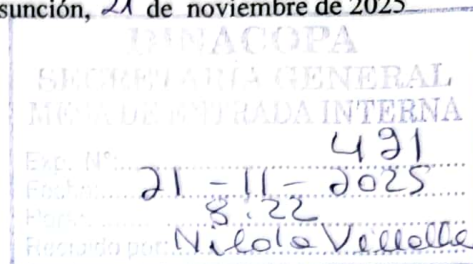 sunción, 21 de noviembre de 2025
DINACOPA
SECRETARÍA GENERAL
MESA DE ENTRADA INTERNA
Exp. N°: 491
Fecha: 21-11-2025
Hora: 8:22
Recibido por: Nilda